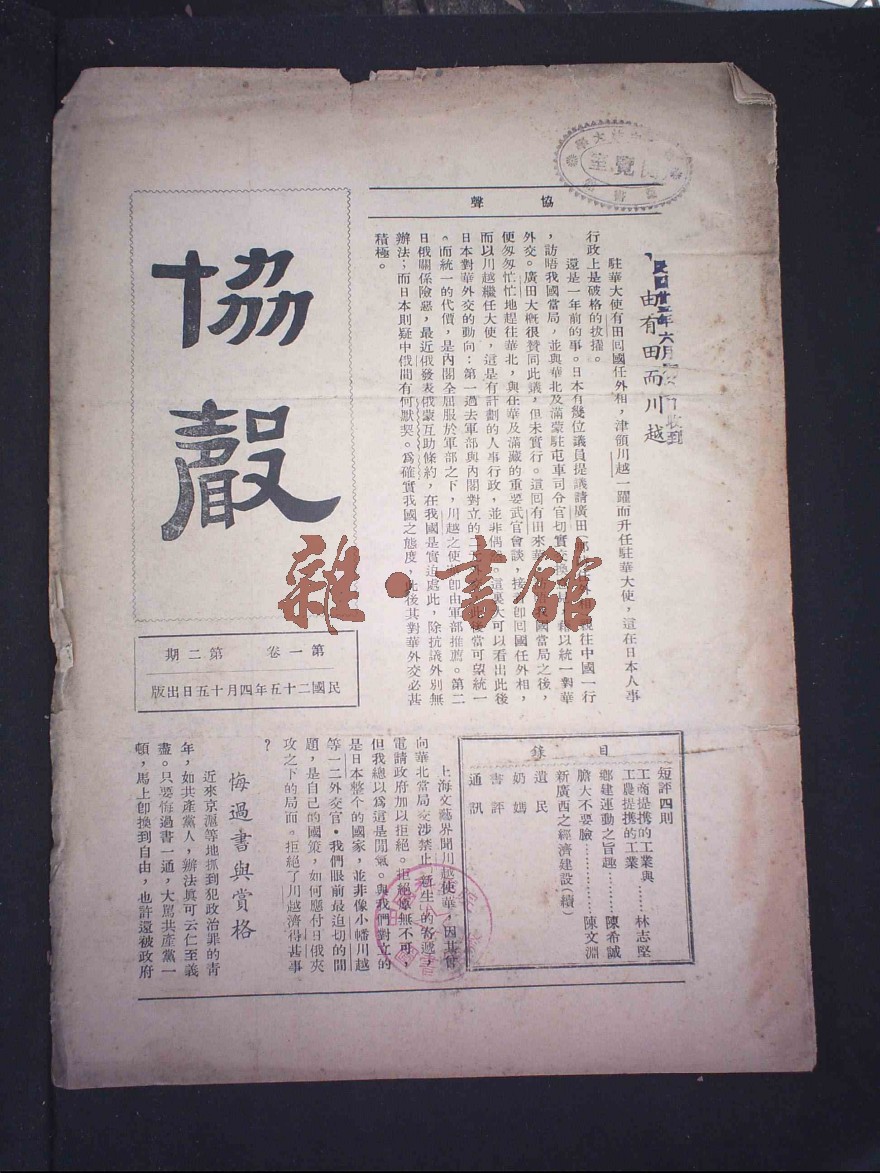 協聲
協聲
第一卷 第二期
民國二十五年四月十五日出版
由有田而川越
駐華大使有田囘國任外相，津領川越一躍而升任駐華大使，這在日本人事
行政上是破格的拔擢。
還是一年前的事。日本有幾位議員提議請廣田
往中國一行
，訪晤我國當局，並與華北及滿蒙駐屯軍司令官切實
以統一對華
外交。廣田大槪很贊同此議，但未實行。這囘有田來華
我國當局之後，
便匆匆忙忙地趕往華北，與在華及滿藏的重要武官會談，接
卽囘國任外相，
而以川越繼任大使，這是有計劃的人事行政，並非偶
這裏大可以看出此後
日本對華外交的動向：第一過去軍部與內閣對立的二
後當可望統一
。而統一的代價，是內閣全屈服於軍部之下，川越之使
卽由軍部推薦。第二
日俄關係險惡，最近俄發表俄蒙互助條約，在我國是實迫處此，除抗議外別無
辦法；而日本則疑中俄間有何默契。爲確實我國之態度，此後其對華外交必甚
積極。
目錄
短評四則
工商提携的工業與
工農提携的工業………林志堅
鄕建運動之旨趣………陳希誠
膽大不要臉…………陳文淵
新廣西之經濟建設（續）
遺民
奶媽
書評
通訊
上海文藝界聞川越使華，因其曾
向華北當局交涉禁止新生的寄遞，
電請政府加以拒絕。拒絕原無不可，
但我總以爲這是閒氣。與我們對立的
是日本整个的國家，並非像小幡川越
等一二外交官。我們眼前最迫切的問
題，是自己的國策，如何應付日俄夾
攻之下的局面。拒絕了川越濟得甚事
？
悔過書與賞格
近來京滬等地抓到犯政治罪的青
年，如共產黨人，辦法眞可云仁至義
盡。只要悔過書一通，大罵共產黨一
頓，馬上卽換到自由，也許還被政府
雜·書館